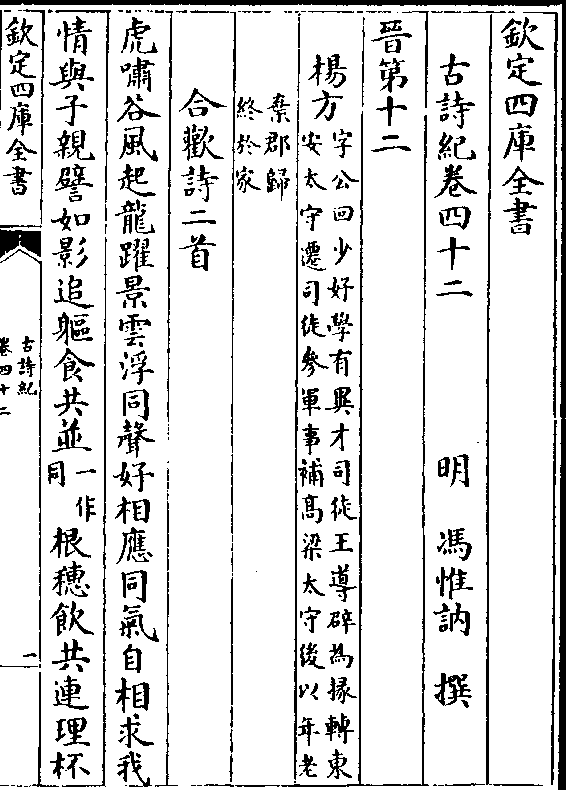 欽定四庫全書
古詩紀卷四十二
明 馮惟訥 撰
晉第十二
楊方
字公回少好學有異才司徒王導辟為掾轉東
安太守遷司徒參軍事補髙梁太守後以年老
棄郡歸
終於家
合歡詩二首
虎嘯谷風起龍躍景雲浮同聲好相應同氣自相求我
情與子親譬如影追軀食共並一作同根穗飲共連理杯
欽定四庫全書
古詩紀
卷四十二
一